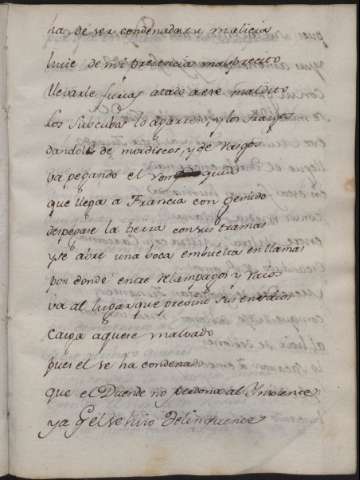 ha de ser condenada tu malicia
huie de mi presencia mal
llevarle furias atado a ese maldito
los Subcubos lo agarran, y los
dandole de mordiscos, y de
va pegando el
que llega a Francia con Gemido
despegase la tierra con sus tramas
y se abre una boca embuelta en llamas
por donde entre relampagos y Raios
va al lugar que
Caiga aquese malvado
pues el se ha condenado
que el Duende no perdona al Inolente
ya Gel se hizo Delinquente